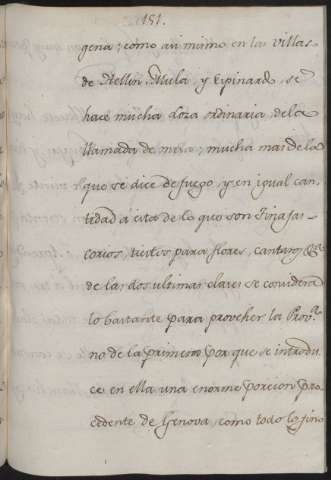 151.
gena; como asi mismo en las villas
de Hellin, Mula, y Espinardo se
hace mucha loza ordinaria, de la
llamada de mesa; mucha mas de la
que se dice de fuego, y en igual can-
tidad à esta de lo que son Tinajas,
corios, tiestos para flores, cantaros &a
de las dos ultimas clases se considera
lo bastante para proveher la Prova
no de la primera por que se introdu-
ce en ella una enorme porcion pro-
cedente de Genova, como todo lo fino